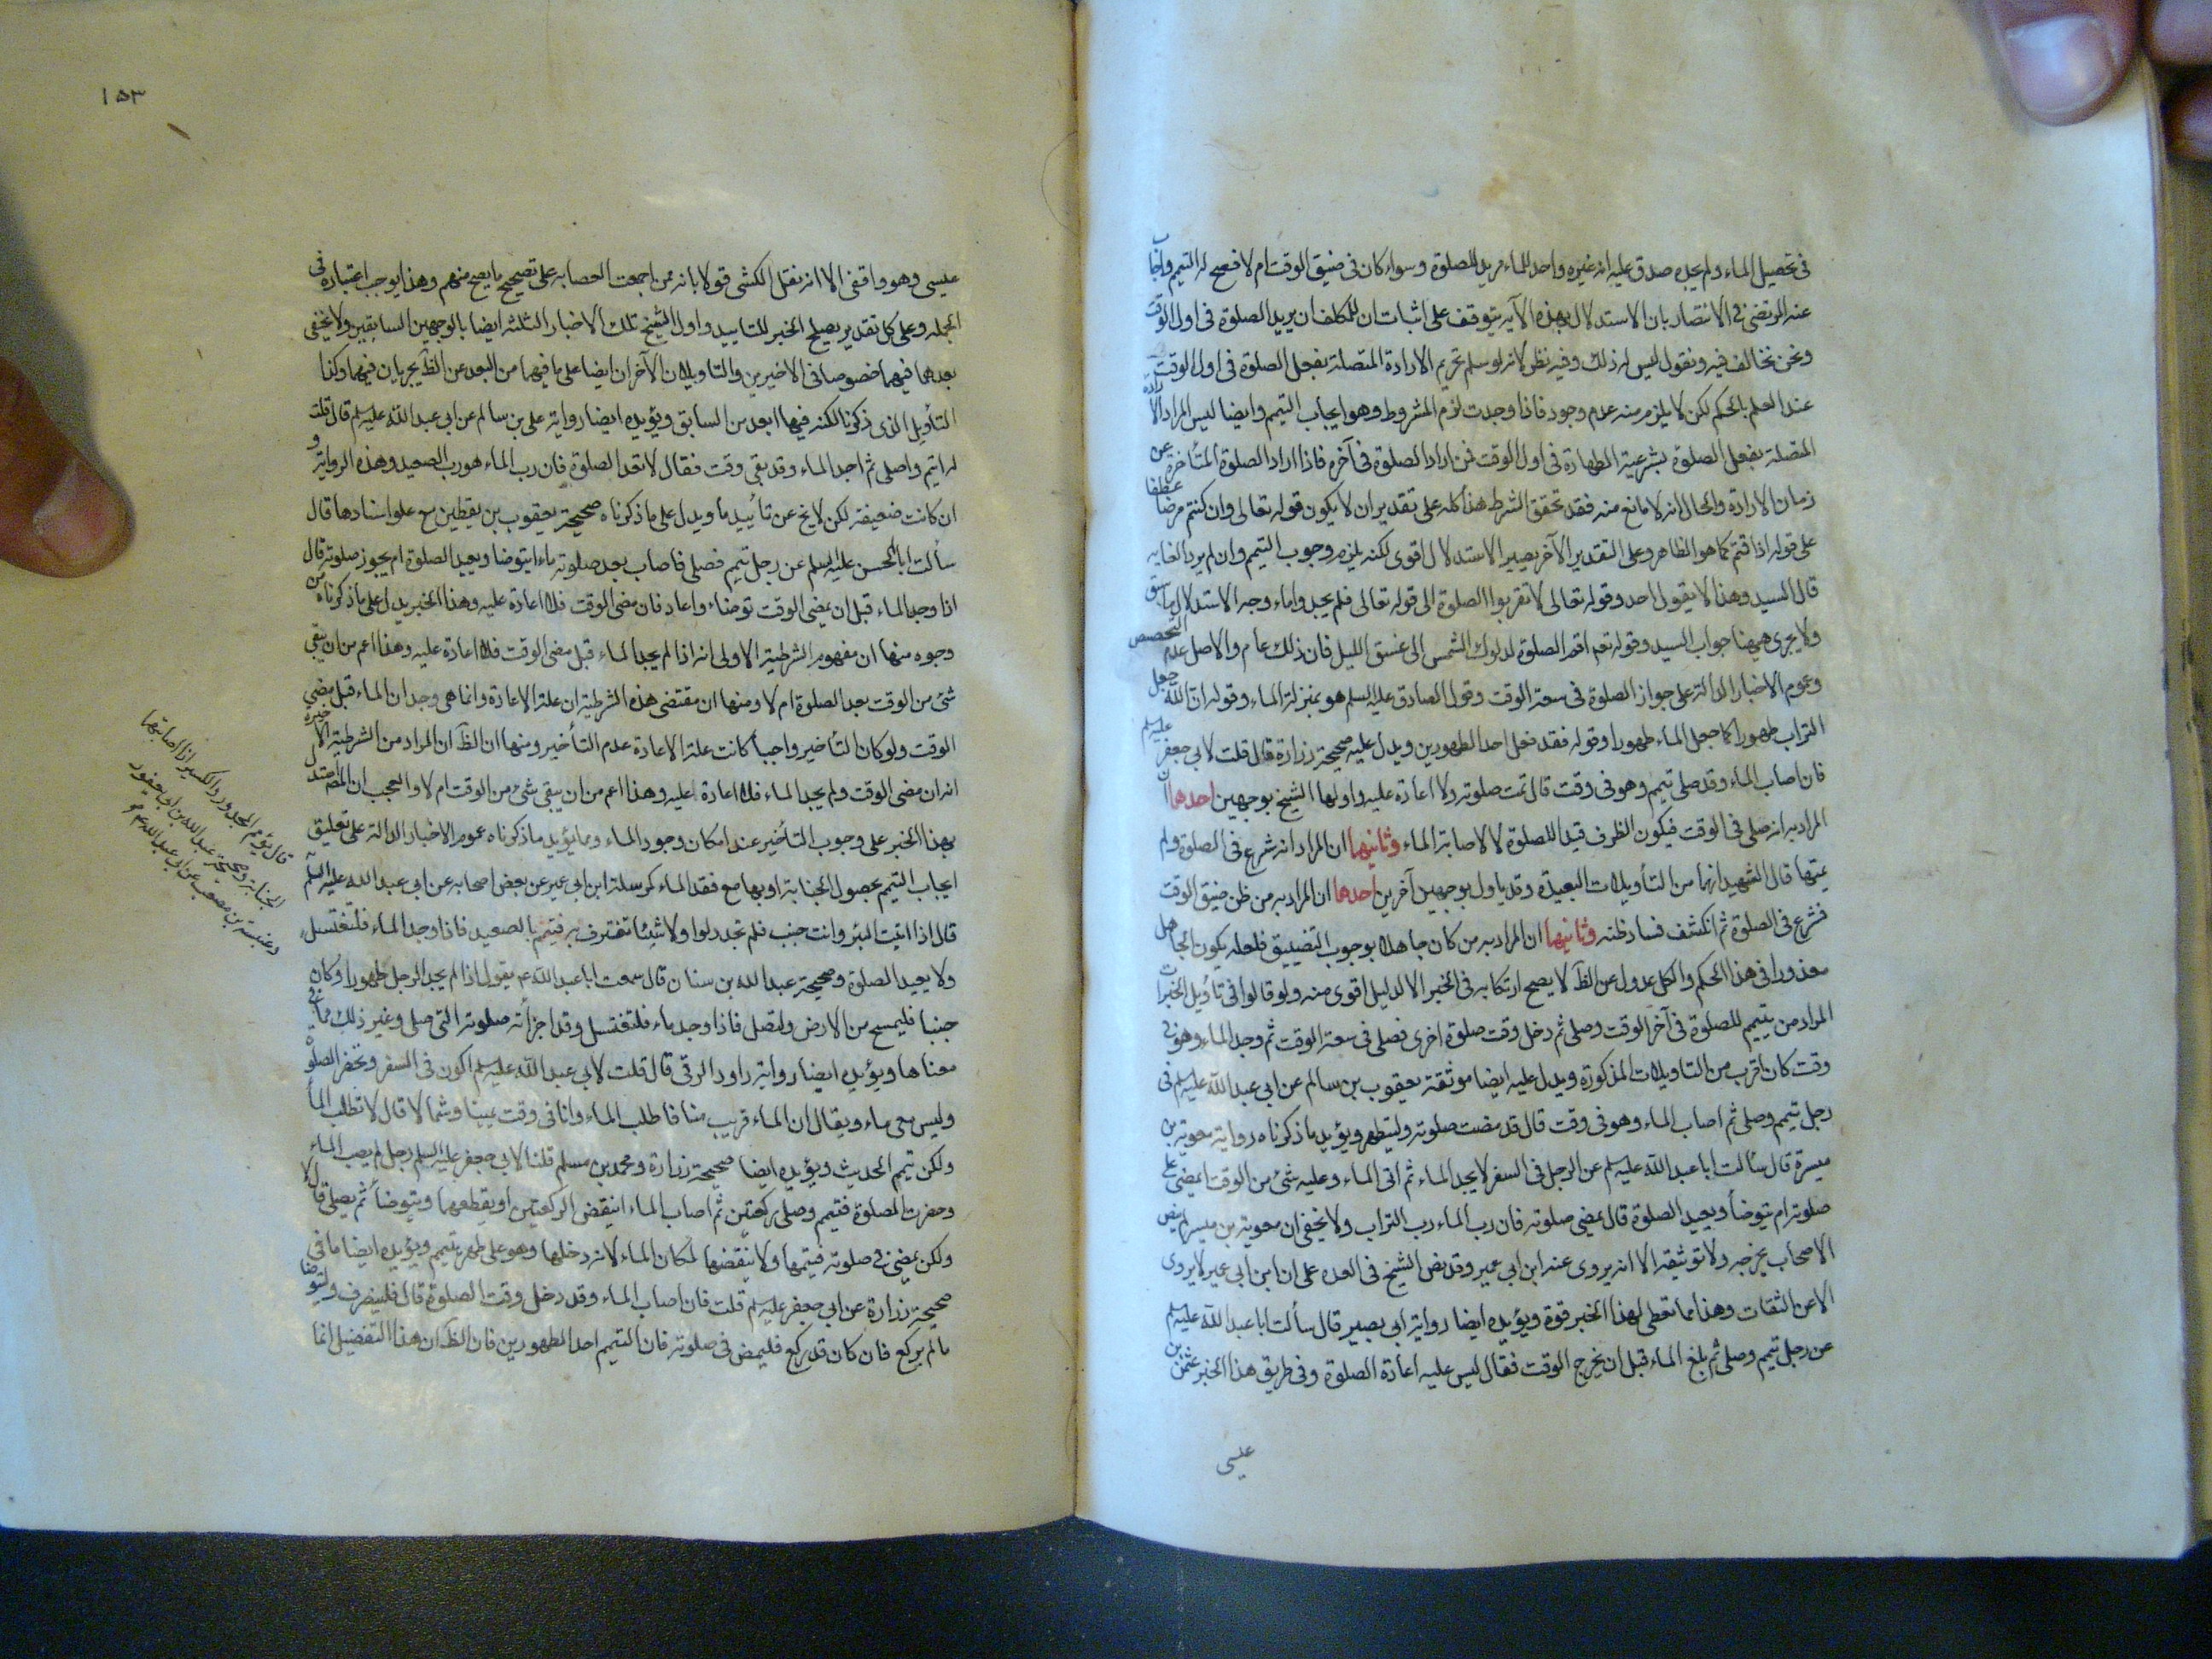 فى تحصيل الماء ولم يجده صدق عليه انه غيره واجد للماء مريد للصلوة وسواء كان فى ضيق الوقت ام لا فصح له التيمم واجاب
عنه المرتضى فى الانتصار بان الاستدلال بهذه الآية يتوقف على اثبات ان للمكلف ان يريد الصلوة فى اول الوقت
ونحن نخالف فيه ونقول ليس له ذلك وفيه نظر لانه لو سلم تحريم الارادة المتصلة بفعل الصلوة فى اول الوقت
عند العلم بالحكم لكن لا يلزم منه عدم وجود فاذا وجدت لزم المشروط وهو ايجاب التيمم وايضا ليس المراد الارادة
المتصلة بفعل الصلوة بشرعية الطهارة فى اول الوقت لمن اراد الصلوة فى آخره فاذا اراد الصلوة المتأخرة عن
زمان الارادة والحال انه لا مانع منه فقد تحقق الشرط هذا كله على تقدير ان لا يكون قوله تعالى وان كنتم مرضى عطفا
على قوله اذا قمتم كما هو الظاهر وعلى التقدير الآخر يصير الاستدلال اقوى لكنه يلزم وجوب التيمم وان لم يرد الغايه
قال السيد وهذا لا يقول احد وقوله تعالى لا تقربوا الصلوة الى قوله تعالى فلم يجدوا ماء وجه الاستدلال ما سبق
ولا يجرى ههنا جواب السيد وقوله تعم اقم الصلوة لدلوك الشمس الى غسق الليل فان ذلك عام والاصل عدم التخصيص
وعموم الاخبار الدالة على جواز الصلوة فى سعة الوقت وقول الصادق عليه السلم هو بمنزلة الماء وقوله ان الله جعل
التراب طهورا كما جعل الماء طهورا وقوله فقد فعل احد الطهورين ويدل عليه صحيحة زرارة قال قلت لابى جعفر عليه السلم
فان اصاب الماء وقد صلى بتيمم وهو فى وقت قال تمت صلوته ولا اعادة عليه واولها الشيخ بوجهين احدهما ان
المراد به انه صلى فى الوقت فيكون الظرف قيد للصلوة لا لاصابة الماء وثانيهما ان المراد انه شرع فى الصلوة ولم
يتمها قال الشهيد انهما من التأويلات البعيدة وقد ياول بوجهين آخرين احدهما ان المراد به من ظن ضيق الوقت
فشرع فى الصلوة ثم انكشف فساد ظنه وثانيهما ان المراد به من كان جاهلا بوجوب التضييق فلعله يكون الجاهل
معذورا فى هذا الحكم والكل عدول عن الظ لا يصح ارتكابه فى الخبر الا لدليل اقوى منه ولو قالوا فى تأويل الخبر ان
المراد من يتيمم للصلوة فى آخر الوقت وصلى ثم دخل وقت صلوة اخرى فصلى فى سعة الوقت ثم وجد الماء وهو فى
وقت كان اقرب من التاويلات المذكورة ويدل عليه ايضا موثقة يعقوب بن سالم عن ابى عبد الله عليه السلم فى
رجل تيمم وصلى ثم اصاب الماء وهو فى وقت قال قد مضت صلوته وليتطهر ويؤيد ما ذكرناه رواية معوية بن
ميسرة قال سألت ابا عبد الله عليه السلم عن الرجل فى السفر لا يجد الماء ثم اتى الماء وعليه شئ من الوقت ايمضى على
صلوته ام يتوضأ ويعيد الصلوة قال يمضى صلوته فان رب الماء رب التراب ولا يخفى ان معوية بن ميسرة لم ينص
الاصحاب بجرحه ولا توثيقه الا انه يروى عنه ابن ابى عمير وقد نص الشيخ فى العده على ان ابن ابى عمير لا يروى
الا عن الثقات وهذا مما تعطى لهذا الخبر قوة ويؤيده ايضا رواية ابى بصير قال سألت ابا عبد الله عليه السلم
عن رجل تيمم وصلى ثم بلغ الماء قبل ان يخرج الوقت فقال ليس عليه اعادة الصلوة وفى طريق هذا الخبر عثمن بن
عيسى
١٥٣
عيسى وهو واقفى الا انه نقل الكشى قولا بانه ممن اجمعت العصابه على تصحيح ما يصح منهم وهذا يوجب اعتباره فى
الجمله وعلى كل تقدير يصلح الخبر للتاييد واول الشيخ تلك الاخبار الثلثه ايضا بالوجهين السابقين ولا يخفى
بعدهما فيهما خصوصا فى الاخيرين والتاويلان الآخران ايضا على ما فيهما من البعد عن الظ يجريان فيهما وكذا
التأويل الذى ذكرنا لكنه فيهما ابعد من السابق ويؤيده ايضا رواية على بن سالم عن ابى عبد الله عليه السلم قال قلت
له اتيمم واصلى ثم اجد الماء وقد بقى وقت فقال لا تعد الصلوة فان رب الماء هو رب الصعيد وهذه الرواية و
ان كانت ضعيفة لكن لا يخ عن تأييد ما ويدل على ما ذكرناه صحيحة يعقوب بن يقطين مع علو اسنادها قال
سألت ابا الحسن عليه السلم عن رجل تيمم فصلى فاصاب بعد صلوته ماء ايتوضا ويعيد الصلوة ام يجوز صلوته قال
اذا وجد الماء قبل ان يمضى الوقت توضاء واعاد فان مضى الوقت فلا اعادة عليه وهذا الخبر يدل على ما ذكرناه من
وجوه منها ان مفهوم الشرطية الاولى انه اذا لم يجد الماء قبل مضى الوقت فلا اعادة عليه وهذا اعم من ان يبقى
شئ من الوقت بعد الصلوة ام لا ومنها ان مقتضى هذه الشرطية ان علة الاعادة وانما هى وجدان الماء قبل مضى
الوقت ولو كان التأخير واجبا كانت علة الاعادة عدم التأخير ومنها ان الظ ان المراد من الشرطية الاخيرة
انه ان مضى الوقت ولم يجد الماء فلا اعادة عليه وهذا اعم من ان يبقى شئ من الوقت ام لا والعجب ان المص استدل
بهذا الخبر على وجوب التأخير عند امكان وجود الماء ومما يؤيد ما ذكرناه عموم الاخبار الدالة على تعليق
ايجاب التيمم بحصول الجنابة او بها مع فقد الماء كمرسلة ابن ابى عمير عن بعض اصحابه عن ابى عبد الله عليه السلم
قال اذا اتيت البئر وانت جنب فلم تجد دلوا ولا شيئا تغترف به فتيمم بالصعيد فاذا وجد الماء فلتغتسل
ولا يعيد الصلوة وصحيحة عبد الله بن سنان قال سمعت ابا عبد الله ع يقول اذا لم يجد الرجل طهورا وكان
جنبا فليمسح من الارض وليصل فاذا وجد ماء فلتغتسل وقد اجزأته صلوته التى صلى وغير ذلك مما فى
معناها ويؤيده ايضا رواية داود الرقى قال قلت لابى عبد الله عليه السلم اكون فى السفر وتحضر الصلوة
وليس معى ماء ويقال ان الماء قريب منا فاطلب الماء وانا فى وقت يمينا وشمالا قال لا تطلب الماء
ولكن تيمم الحديث ويؤيده ايضا صحيحة زرارة ومحمد بن مسلم قلنا لابى جعفر عليه السلم رجل لم يصب الماء
وحضرت الصلوة فتيمم وصلى ركعتين ثم اصاب الماء اينقض الركعتين او يقطعهما ويتوضأ ثم يصلى قال لا
ولكن يمضى فى صلوته فيتمها ولا ينقضها لمكان الماء لانه دخلها وهو على طهر بتيمم ويؤيده ايضا ما فى
صحيحة زرارة عن ابى جعفر عليه السلم قلت فان اصاب الماء وقد دخل وقت الصلوة قال فلينصرف وليتوضا
ما لم يركع فان كان قد ركع فليمض فى صلوته فان التيمم احد الطهورين فان الظ ان هذا التفصيل انما
قال يؤمم المجدور والكسير اذا اصابتهما
الجنابة وصحيحة عبد الله بن ابى يعفور
وعنبسة بن مصعب عن ابى عبد الله ع